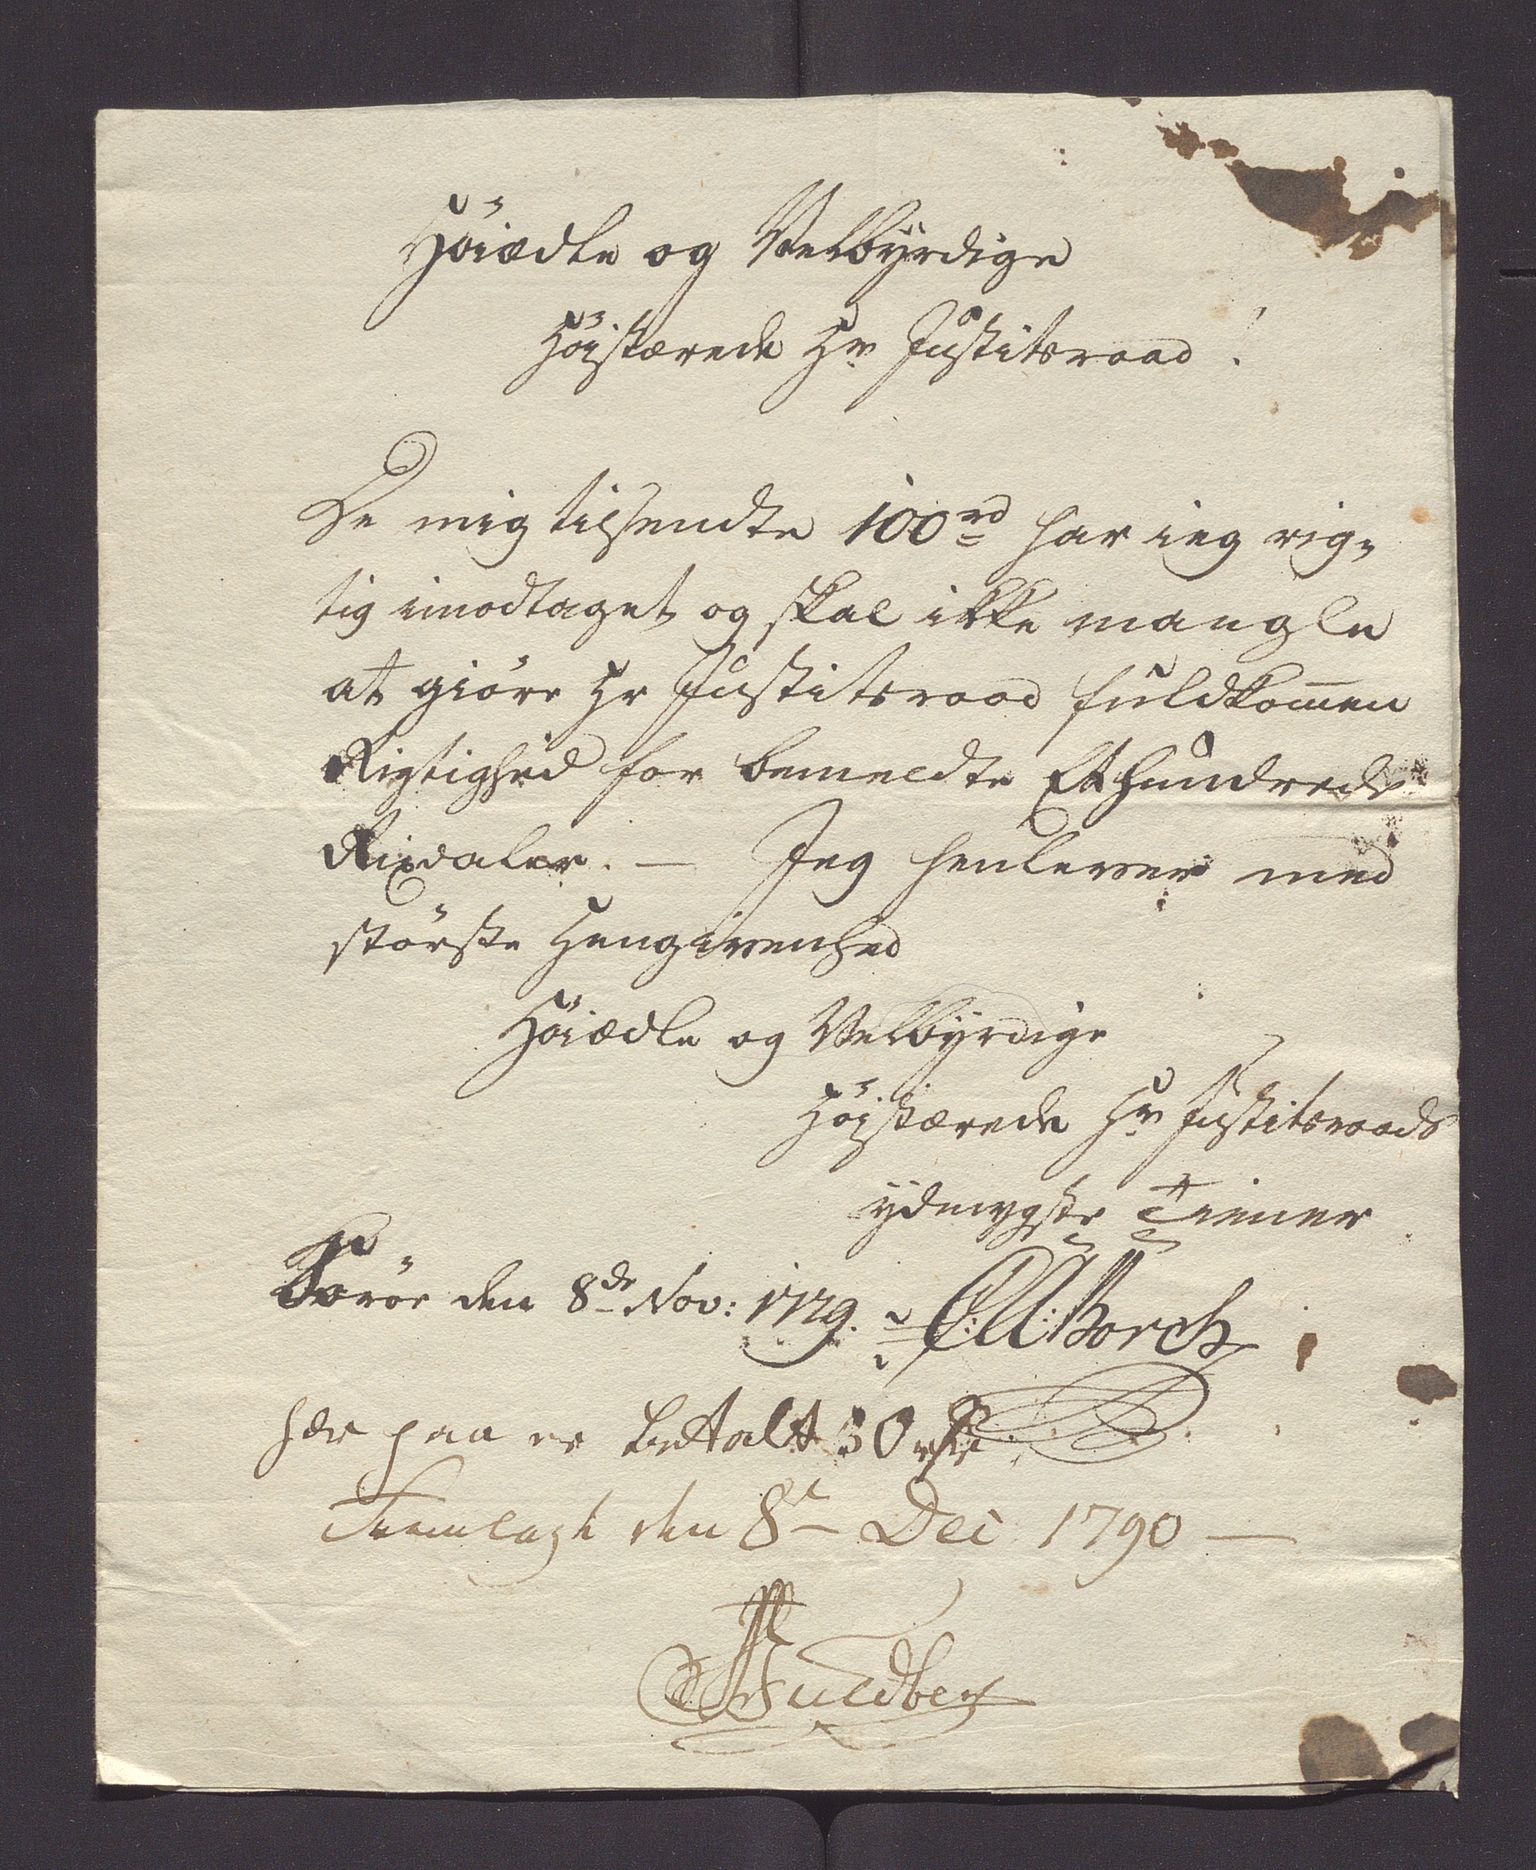 Höiædle og Velbyrdige
Höjstærede Hr Justitsraad!
De mig tilsendte 100 rd har ieg rig-
tig imodtaget og skal ikke mangle
at giöre Hr Justitsraad fuldkommen
Rigtighed for bemeldte Et hundrede
Rixdaler. — Jeg henlever med
störste Hengivenhed
Höiædle og Velbyrdige
Höjstærede Hr Justitsraads
ydmygste Tiener
den 8de Nov: 1779. Borch
her paa er betalt 30
den 8t Dec 1790 —
Guldberg